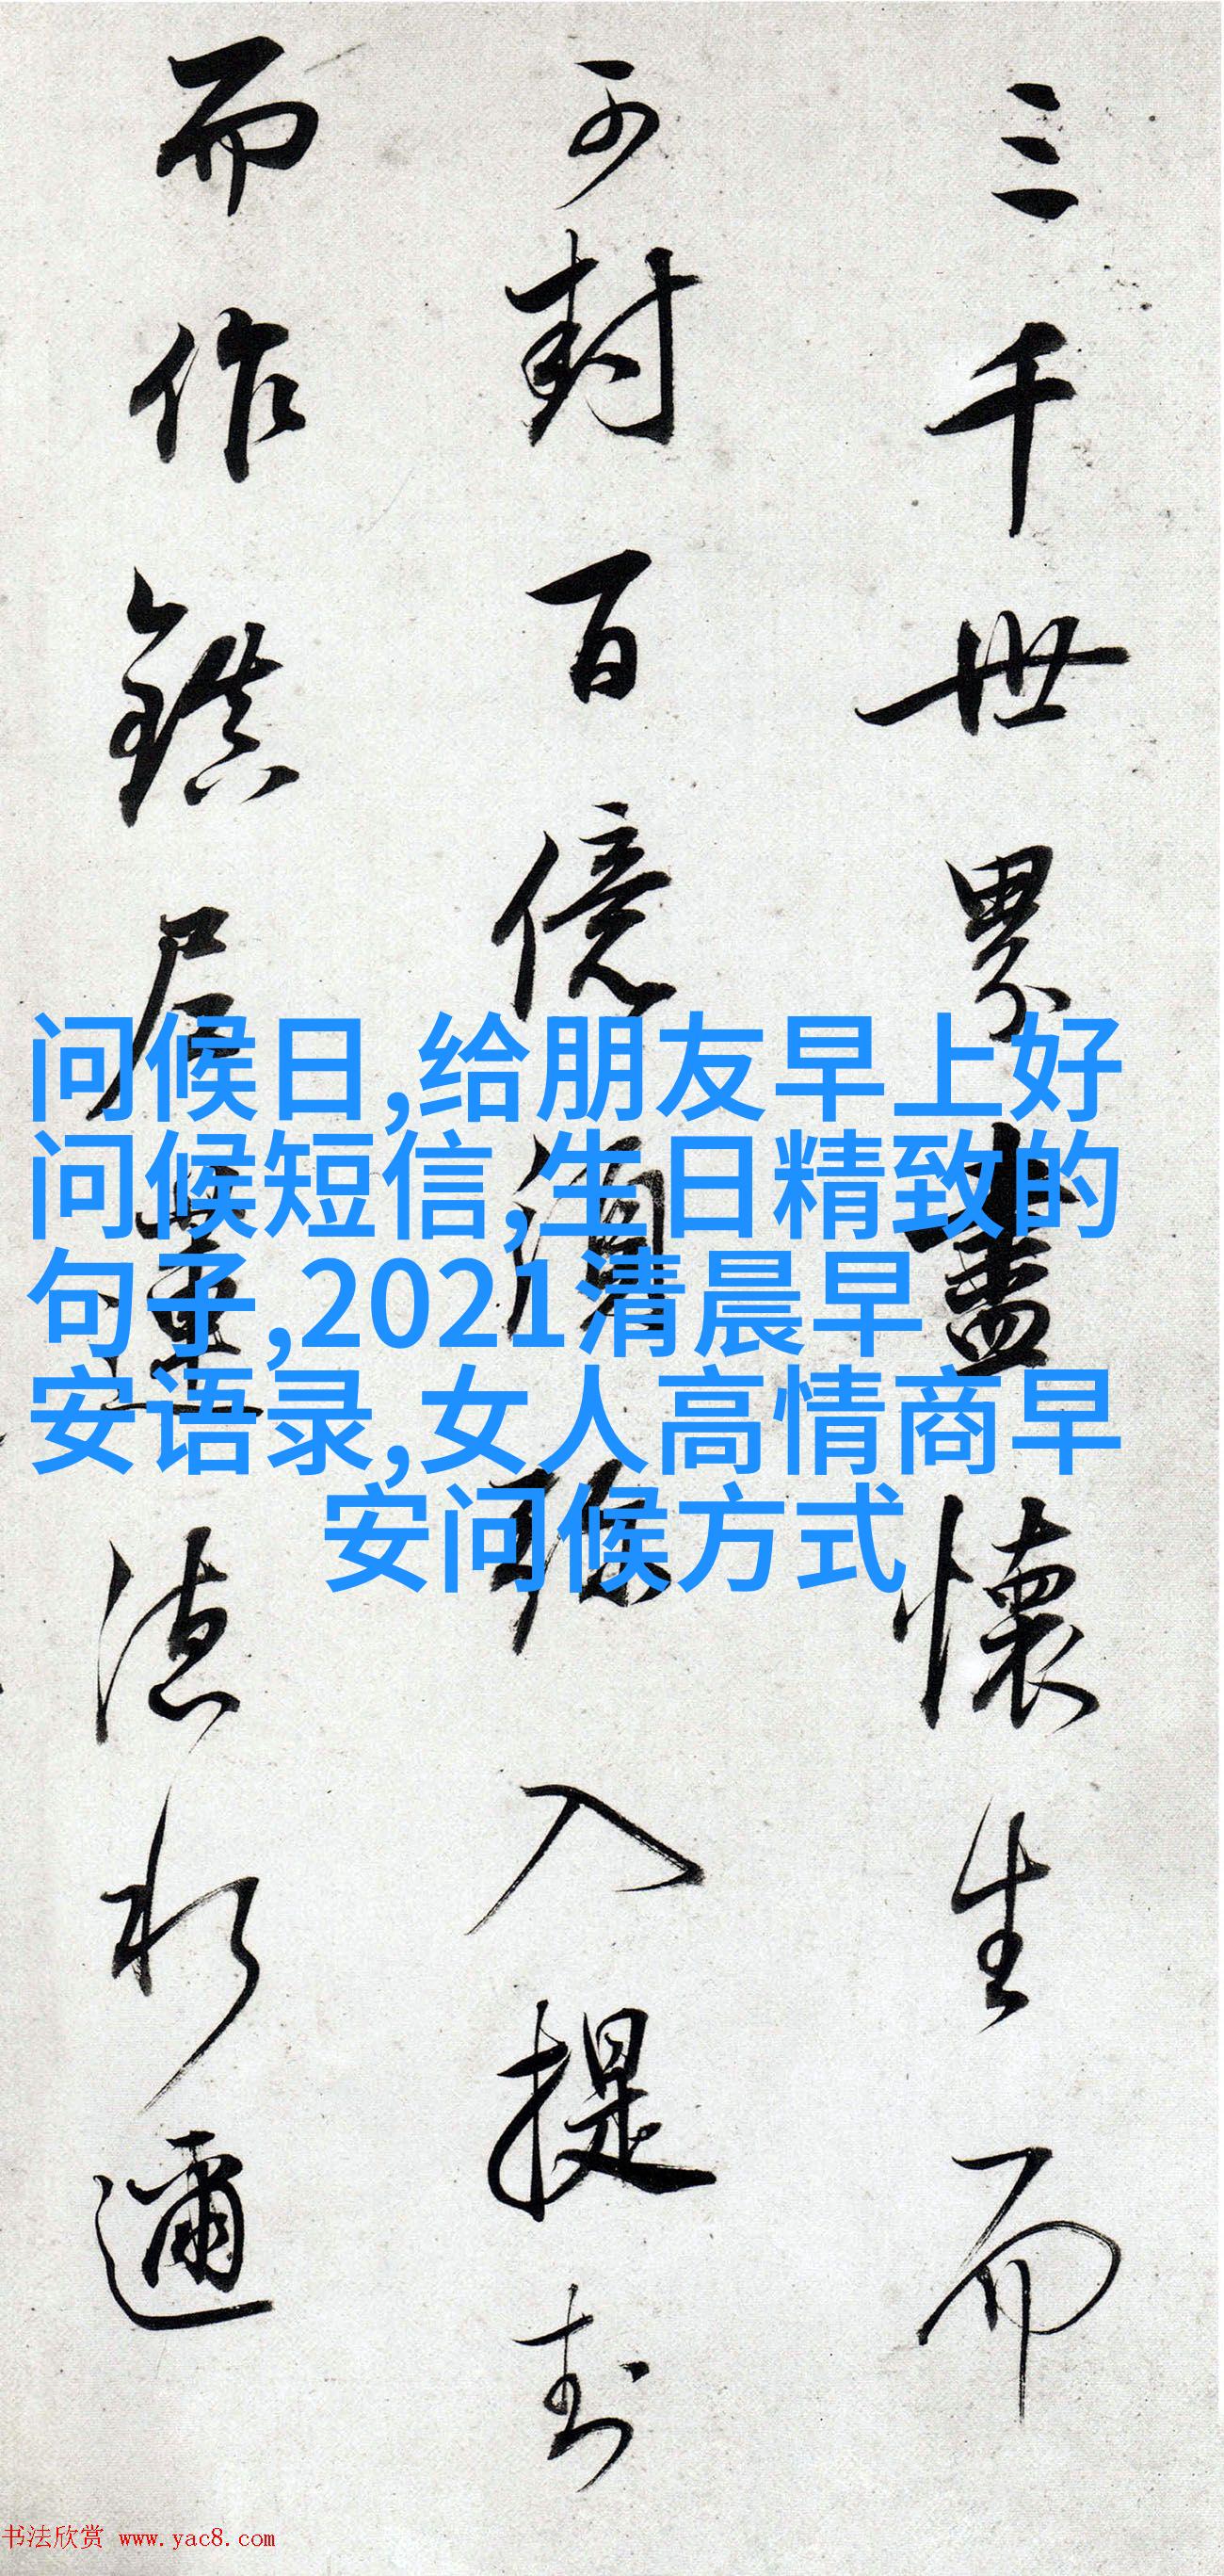 三千世界盡懷生而
可封百億須弥入提封
而作鎮居塵
德水彌
问候日,给朋友早上好
问候短信,生日精致的
句子,2021清晨早
安语录,女人高情商早
安问候方式
书法欣赏 www.yac8.com